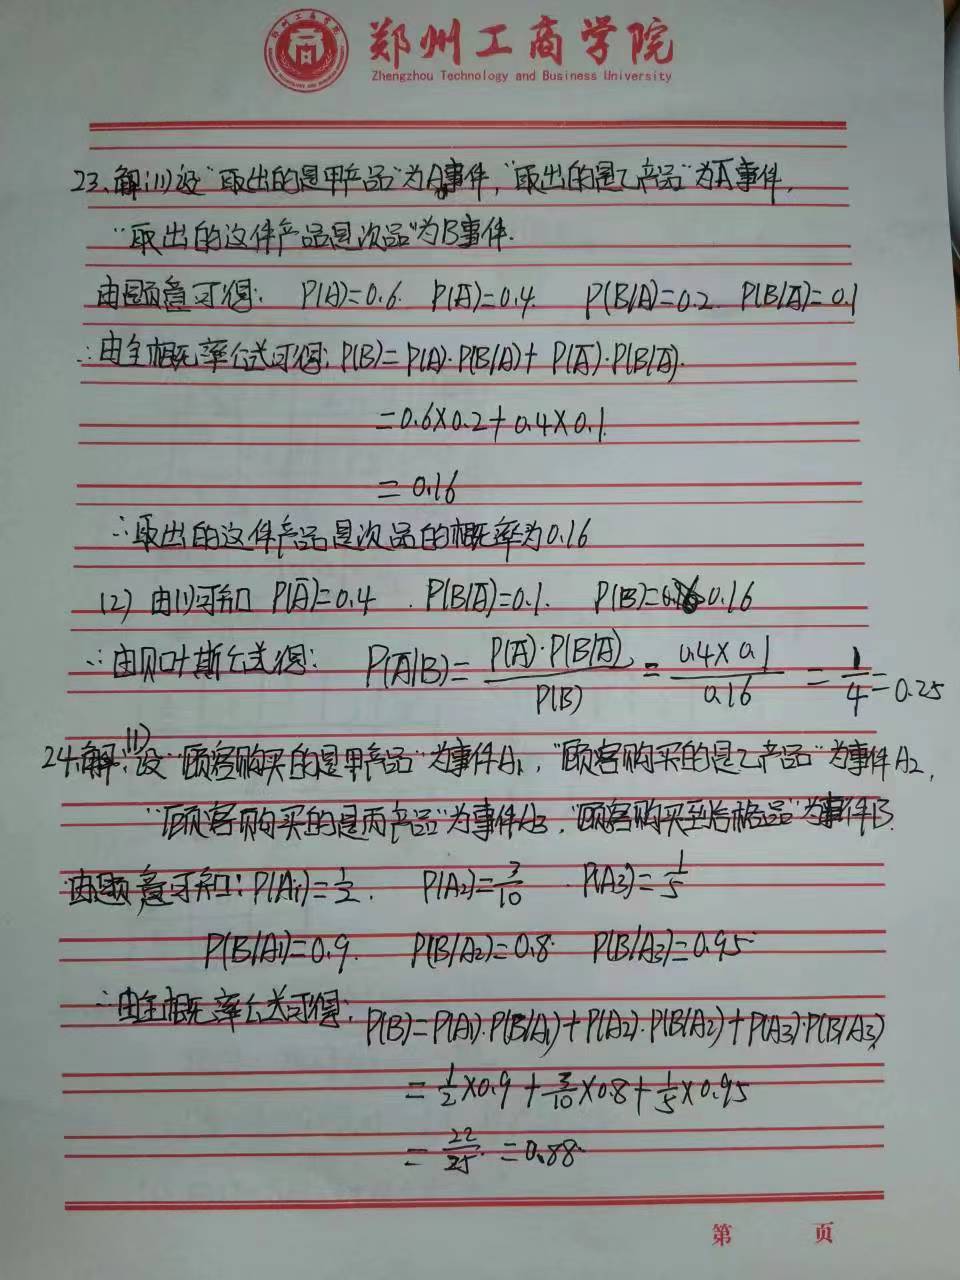 郑州工商学院
Zhengzhou Technology and Business University
23.解:(1)设"取出的是甲产品"为A事件,"取出的是乙产品"为A̅事件,
"取出的这件产品是次品"为B事件.
由题意可得: P(A)=0.6. P(A̅)=0.4. P(B/A)=0.2. P(B/A̅)=0.1
∴由全概率公式可得: P(B)=P(A)·P(B/A)+P(A̅)·P(B/A̅).
=0.6×0.2+0.4×0.1.
=0.16
∴取出的这件产品是次品的概率为0.16
(2) 由(1)可知 P(A̅)=0.4 . P(B/A̅)=0.1. P(B)=0.16
∴由贝叶斯公式得: P(A̅|B)= P(A̅)·P(B/A̅)/P(B) = 0.4×0.1/0.16 = 1/4 =0.25
24.解:(1)设"顾客购买的是甲产品"为事件A₁,"顾客购买的是乙产品"为事件A₂,
"顾客购买的是丙产品"为事件A₃,"顾客购买到合格品"为事件B.
由题意可知: P(A₁)=1/2. P(A₂)=3/10 . P(A₃)=1/5
P(B/A₁)=0.9. P(B/A₂)=0.8. P(B/A₃)=0.95.
∴由全概率公式可得: P(B)=P(A₁)·P(B/A₁)+P(A₂)·P(B/A₂)+P(A₃)·P(B/A₃)
=1/2×0.9+3/10×0.8+1/5×0.95
=22/25. =0.88.
第 页